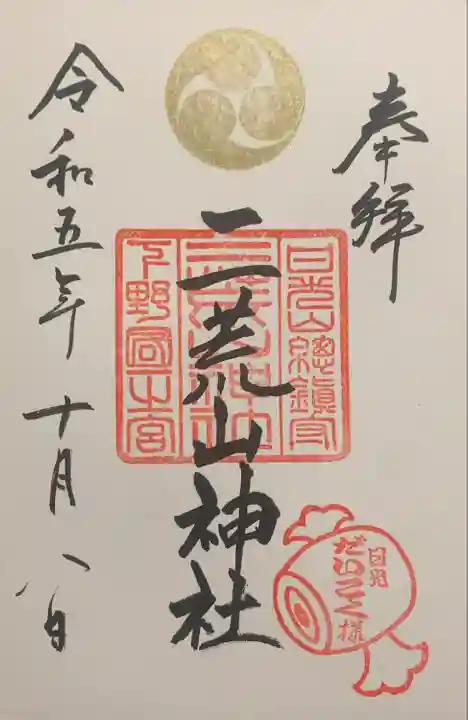 奉拝
日光山総鎮守
二荒山神社
二荒山神社
下野國一之宮
日光
だいこく様
令和五年十月八日